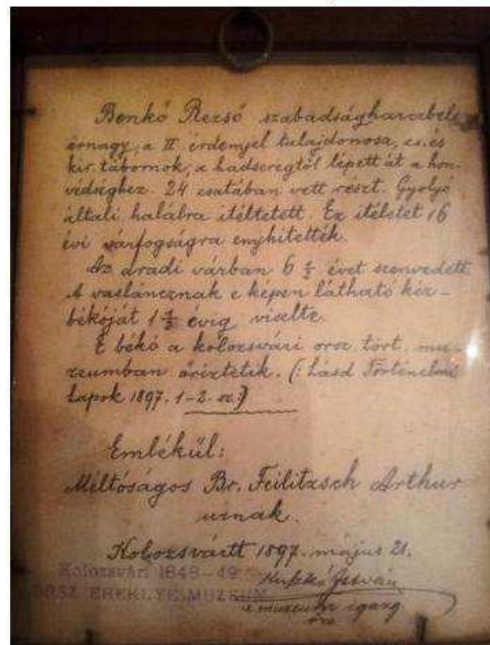 Benkő Rezső szabadságharczbeli
őrnagy, a III. érdemjel tulajdonosa, cs. és
kir. tábornok, a hadseregtől lépett át a hon-
védséghez. 24 csatában vett részt. Golyó
általi halálra itéltetett. Ez itéletet 16
évi várfogságra enyhitették.
Az aradi várban 6 ½ évet szenvedett.
A vasláncznak e képen látható kéz-
békóját 1 ½ évig viselte.
E békó a kolozsvári orsz. tört. mu-
zeumban őriztetik. (: Lásd Történelmi
Lapok 1897. 1-2. sz. :)
Emlékül:
Méltóságos Br. Feilitzsch Arthur
urnak.
Kolozsvártt 1897. május 21.
Kolozsvári 1848-49
ORSZ. EREKLYE-MUZEUM
István
a muzeum igazg.
őre